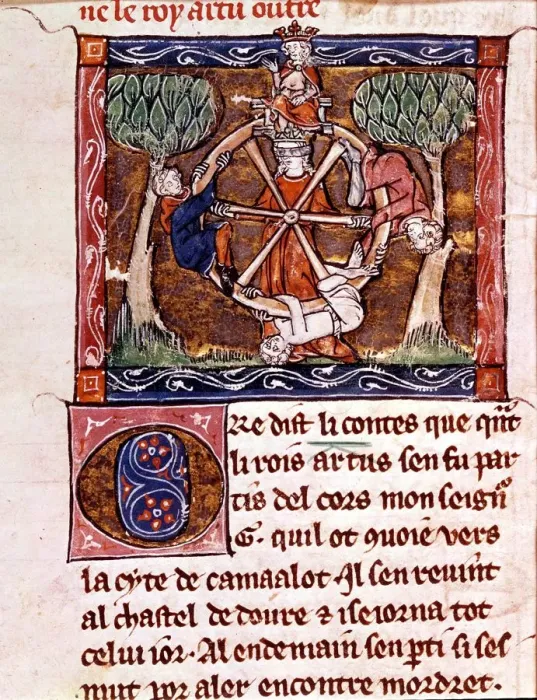 ne le roy artu outre
Ore dist li contes que qnt
li rois artus sen fu par
tis del cors mon seign
.G. quil ot 9uoie vers
la cyte de camaalot. Il sen reuint
al chastel de doure ⁊ i seiorna tot
celui ior. Al endemain sen pti si ses
mut por aler encontre mordret.